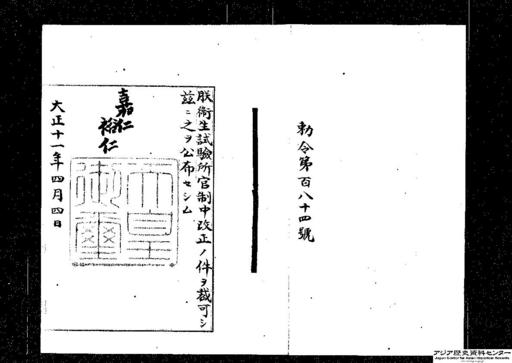 勅令第百八十四號
朕衛生試驗所官制中改正ノ件ヲ裁可シ
茲ニ之ヲ公布セシム
嘉仁
裕仁
大正十一年四月四日
天皇
御璽
アジア歴史資料センター
Japan Center for Asian Historical Records